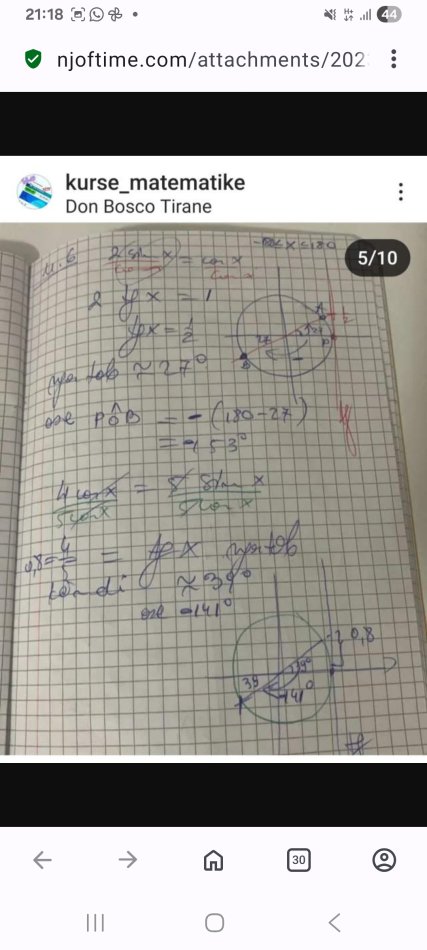 21:18
44
njoftime.com/attachments/202
kurse_matematike
Don Bosco Tirane
5/10
2 sin x = cos x
2 tg x = 1
tg x = 1/2
≈ 27°
ose PÔB = -(180-27)
= -153°
4 cos x / 5 cos x = 5 sin x / 5 cos x
0,8 = 4/5 = tg x
≈ 39°
ose -141°
0,8
39°
39
141°
30